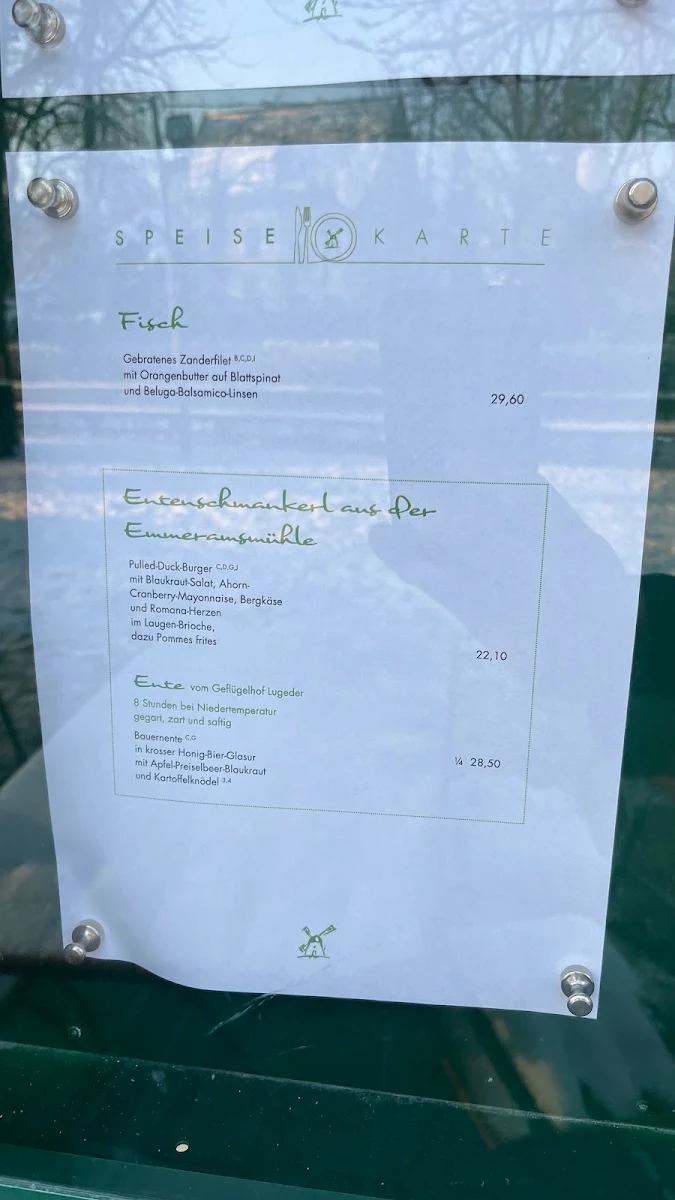 SPEISE KARTE
Fisch
Gebratenes Zanderfilet B,C,D,I
mit Orangenbutter auf Blattspinat
und Beluga-Balsamico-Linsen
29,60
Entenschmankerl aus der
Emmeramsmühle
Pulled-Duck-Burger C,D,G,J
mit Blaukraut-Salat, Ahorn-
Cranberry-Mayonnaise, Bergkäse
und Romana-Herzen
im Laugen-Brioche,
dazu Pommes frites
22,10
Ente vom Geflügelhof Lugeder
8 Stunden bei Niedertemperatur
gegart, zart und saftig
Bauernente C,G
in krosser Honig-Bier-Glasur
mit Apfel-Preiselbeer-Blaukraut
und Kartoffelknödel 3,4
¼ 28,50